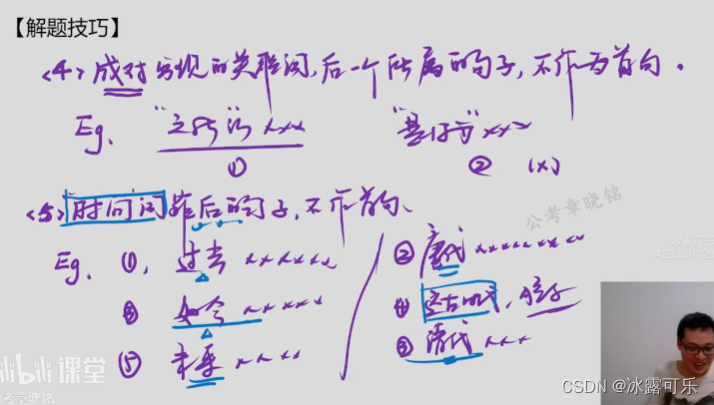 【解题技巧】
<4>成对出现的关联词,后一个所属的句子,不作为首句。
Eg、 "之所以" ××× "是因为" ×××
① ② (×)
<5>时间词靠后的句子,不作首句、
公考章晓铭
Eg、 ①、过去 ×××××× ②唐代 ××××××××
③ 如今 ××××× ④ 远古时代,
⑤ 未来 ×××× ③ 清代 ×××
bilibili 课堂
考章晓铭
CSDN @冰露可乐